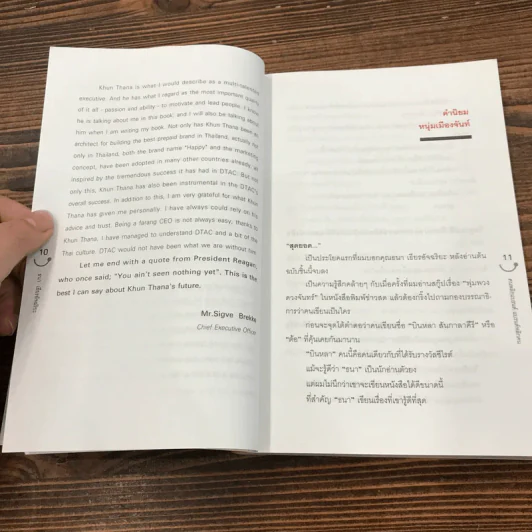 Khun Thana is what I would describe as a multi-talented
executive. And he has what I regard as the most important quality
of it all - passion and ability - to motivate and lead people. I know
he is talking about me in this book; and I will also be talking about
him when I am writing my book. Not only has Khun Thana been an
architect for building the best prepaid brand in Thailand, actually not
only in Thailand, both the brand name "Happy" and the marketing
concept, have been adopted in many other countries already, all
inspired by the tremendous success it has had in DTAC. But not
only this, Khun Thana has also been instrumental in the DTAC's
overall success. In addition to this, I am very grateful for what Khun
Thana has given me personally. I have always could rely on his
advice and trust. Being a farang CEO is not always easy; thanks to
Khun Thana. I have managed to understand DTAC and a bit of the
Thai culture. DTAC would not have been what we are without him.
Let me end with a quote from President Reagan,
who once said; "You ain't seen nothing yet". This is the
best I can say about Khun Thana's future.
Mr.Sigve Brekke
Chief Executive Officer
10
คำนิยม
หนุ่มเมืองจันท์
"สุดยอด..."
เป็นประโยคแรกที่ผมบอกคุณธนา เธียรอัจฉริยะ หลังอ่านต้น
ฉบับชิ้นนี้จบลง
เป็นความรู้สึกคล้ายๆ กับเมื่อครั้งที่ผมอ่านสกู๊ปเรื่อง "พุ่มพวง
ดวงจันทร์" ในหนังสือพิมพ์ข่าวสด แล้วต้องวิ่งไปถามกองบรรณาธิ-
การว่าคนเขียนเป็นใคร
ก่อนจะจุดได้คำตอบว่าคนเขียนชื่อ "บินหลา สันกาลาคีรี" หรือ
"ต้อ" ที่คุ้นเคยกันมานาน
"บินหลา" คนนี้คือคนเดียวกับที่ได้รับรางวัลซีไรต์
แม้จะรู้ดีว่า "ธนา" เป็นนักอ่านตัวยง
แต่ผมไม่นึกว่าเขาจะเขียนหนังสือได้ดีขนาดนี้
ที่สำคัญ "ธนา" เขียนเรื่องที่เขารู้ดีที่สุด
11